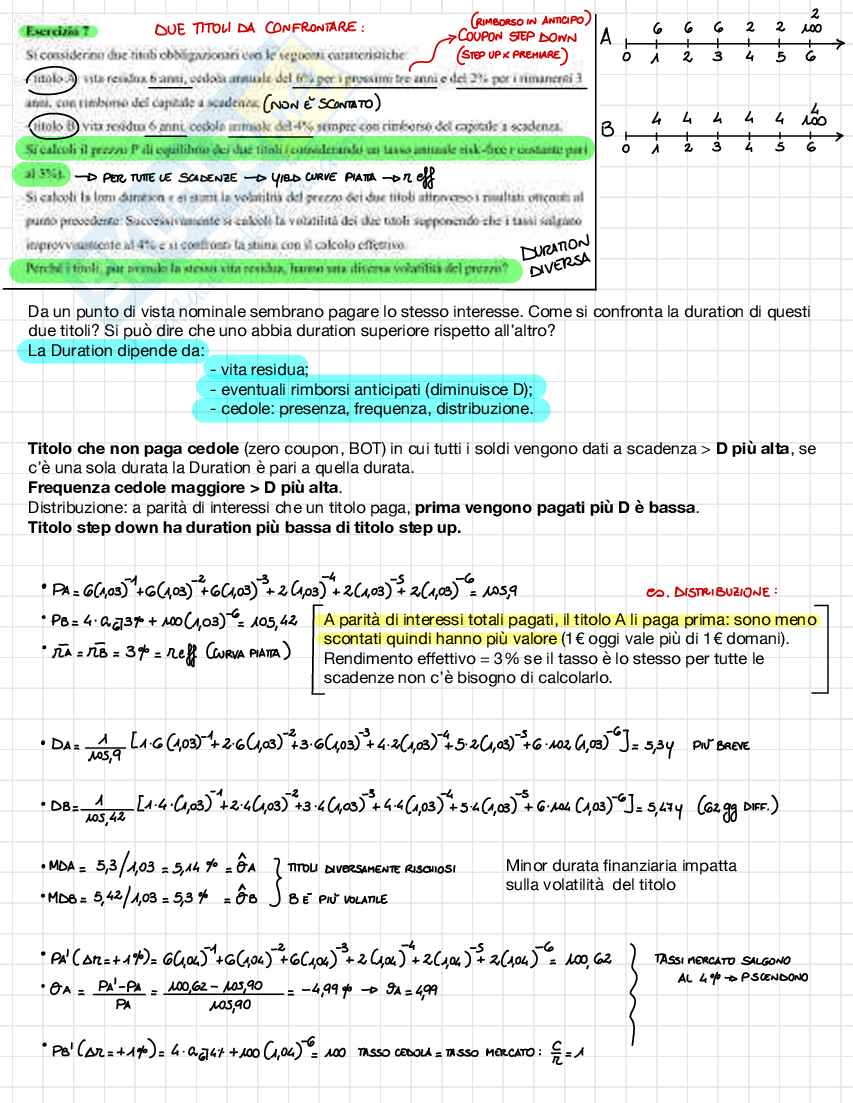 Esercizio 7
DUE TITOLI DA CONFRONTARE :
(RIMBORSO IN ANTICIPO)
COUPON STEP DOWN
(STEP UP X PREMIARE)
Si considerino due titoli obbligazionari con le seguenti caratteristiche:
- titolo A) vita residua 6 anni, cedola annuale del 6% per i prossimi tre anni e del 2% per i rimanenti 3
anni, con rimborso del capitale a scadenza; (NON È SCONTATO)
- titolo B) vita residua 6 anni, cedola annuale del 4% sempre con rimborso del capitale a scadenza.
Si calcoli il prezzo P di equilibrio dei due titoli (considerando un tasso annuale risk-free e costante pari
al 3%). → PER TUTTE LE SCADENZE → YIELD CURVE PIATTA → r eff
Si calcoli la loro duration e si stimi la volatilità del prezzo dei due titoli attraverso i risultati ottenuti al
punto precedente. Successivamente si calcoli la volatilità dei due titoli supponendo che i tassi salgano
improvvisamente al 4% e si confronti la stima con il calcolo effettivo.
Perché i titoli, pur avendo la stessa vita residua, hanno una diversa volatilità del prezzo?
DURATION
DIVERSA
A
6 6 6 2 2 2
100
0 1 2 3 4 5 6
B
4 4 4 4 4 4
100
0 1 2 3 4 5 6
Da un punto di vista nominale sembrano pagare lo stesso interesse. Come si confronta la duration di questi
due titoli? Si può dire che uno abbia duration superiore rispetto all'altro?
La Duration dipende da:
- vita residua;
- eventuali rimborsi anticipati (diminuisce D);
- cedole: presenza, frequenza, distribuzione.
Titolo che non paga cedole (zero coupon, BOT) in cui tutti i soldi vengono dati a scadenza > D più alta, se
c'è una sola durata la Duration è pari a quella durata.
Frequenza cedole maggiore > D più alta.
Distribuzione: a parità di interessi che un titolo paga, prima vengono pagati più D è bassa.
Titolo step down ha duration più bassa di titolo step up.
• PA = 6(1,03)⁻¹+6(1,03)⁻²+6(1,03)⁻³+2(1,03)⁻⁴+2(1,03)⁻⁵+2(1,03)⁻⁶ = 105,9
es. DISTRIBUZIONE :
• PB = 4·a6˥3% + 100(1,03)⁻⁶ = 105,42
• r̄A = r̄B = 3% = r eff (CURVA PIATTA)
A parità di interessi totali pagati, il titolo A li paga prima: sono meno
scontati quindi hanno più valore (1€ oggi vale più di 1€ domani).
Rendimento effettivo = 3% se il tasso è lo stesso per tutte le
scadenze non c'è bisogno di calcolarlo.
• DA = 1/105,9 [1·6(1,03)⁻¹+2·6(1,03)⁻²+3·6(1,03)⁻³+4·2(1,03)⁻⁴+5·2(1,03)⁻⁵+6·102(1,03)⁻⁶] = 5,3y PIÙ BREVE
• DB = 1/105,42 [1·4·(1,03)⁻¹+2·4(1,03)⁻²+3·4(1,03)⁻³+4·4(1,03)⁻⁴+5·4(1,03)⁻⁵+6·104(1,03)⁻⁶] = 5,47y (62gg DIFF.)
• MDA = 5,3/1,03 = 5,14% = σ̂A
TITOLI DIVERSAMENTE RISCHIOSI
• MDB = 5,42/1,03 = 5,3% = σ̂B
B È PIÙ VOLATILE
Minor durata finanziaria impatta
sulla volatilità del titolo
• PA'(Δr=+1%) = 6(1,04)⁻¹+6(1,04)⁻²+6(1,04)⁻³+2(1,04)⁻⁴+2(1,04)⁻⁵+2(1,04)⁻⁶ = 100,62
TASSI MERCATO SALGONO
AL 4% → P SCENDONO
• σA = PA'-PA/PA = 100,62-105,90/105,90 = -4,99% → σA = 4,99
• PB'(Δr=+1%) = 4·a6˥4% +100(1,04)⁻⁶ = 100 TASSO CEDOLA = TASSO MERCATO : C/r = 1